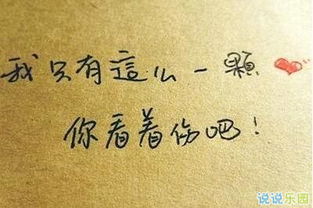 我只有這么一顆
你看着伤吧！
说说乐园